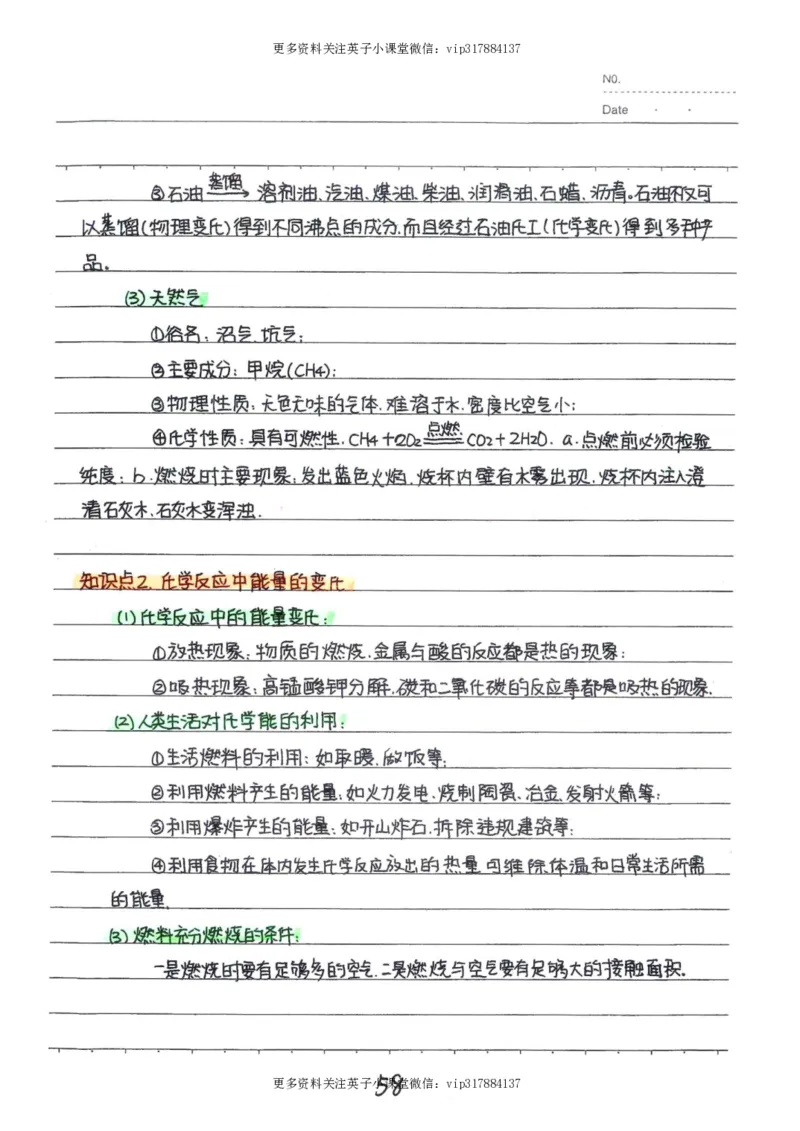 更多资料关注英子小课堂微信：vip317884137
NO.
Date · ·
③石油 蒸馏→ 溶剂油、汽油、煤油、柴油、润滑油、石蜡、沥青。石油不仅可
以蒸馏(物理变化)得到不同沸点的成分，而且经过石油化工(化学变化)得到多种产
品。
(3)天然气
①俗名：沼气、坑气；
②主要成分：甲烷(CH4)；
③物理性质：无色无味的气体、难溶于水、密度比空气小；
④化学性质：具有可燃性，CH4+2O2 点燃═ CO2+2H2O. a.点燃前必须检验
纯度；b.燃烧时主要现象：发出蓝色火焰，烧杯内壁有水雾出现，烧杯内注入澄
清石灰水，石灰水变浑浊.
知识点2. 化学反应中能量的变化
(1)化学反应中的能量变化：
①放热现象：物质的燃烧、金属与酸的反应都是热的现象；
②吸热现象：高锰酸钾分解、碳和二氧化碳的反应等都是吸热的现象.
(2)人类生活对化学能的利用：
①生活燃料的利用：如取暖、做饭等；
②利用燃料产生的能量：如火力发电、烧制陶瓷、冶金、发射火箭等；
③利用爆炸产生的能量：如开山炸石、拆除违规建筑等；
④利用食物在体内发生化学反应放出的热量可维除体温和日常生活所需
的能量.
(3)燃料充分燃烧的条件：
一是燃烧时要有足够多的空气，二是燃烧与空气要有足够大的接触面积.
58
更多资料关注英子小课堂微信：vip317884137